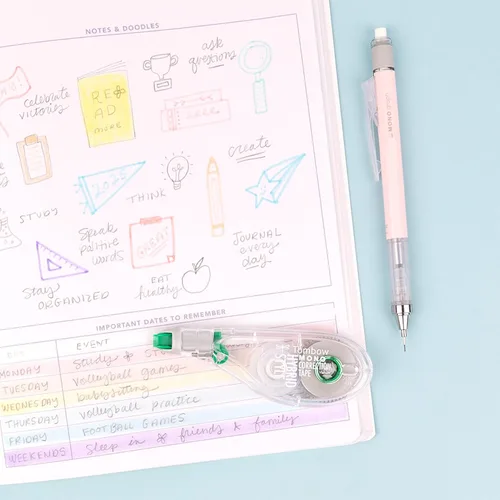 NOTES & DOODLES
ask
questions
celebrate
victories
READ
more
create
2023
THINK
STUDY
Speak
positive
words
GREAT
JOURNAL
every
day
Stay
ORGANIZED
EAT
healthy
MONO
IMPORTANT DATES TO REMEMBER
EVENT
Tombow
MONO
CORRECTION
TAPE
MONDAY Study &
TUESDAY volleyball games
WEDNESDAY babysitting
THURSDAY volleyball practice
FRIDAY FOOTBALL GAMES
WEEKENDS Sleep in & friends & family